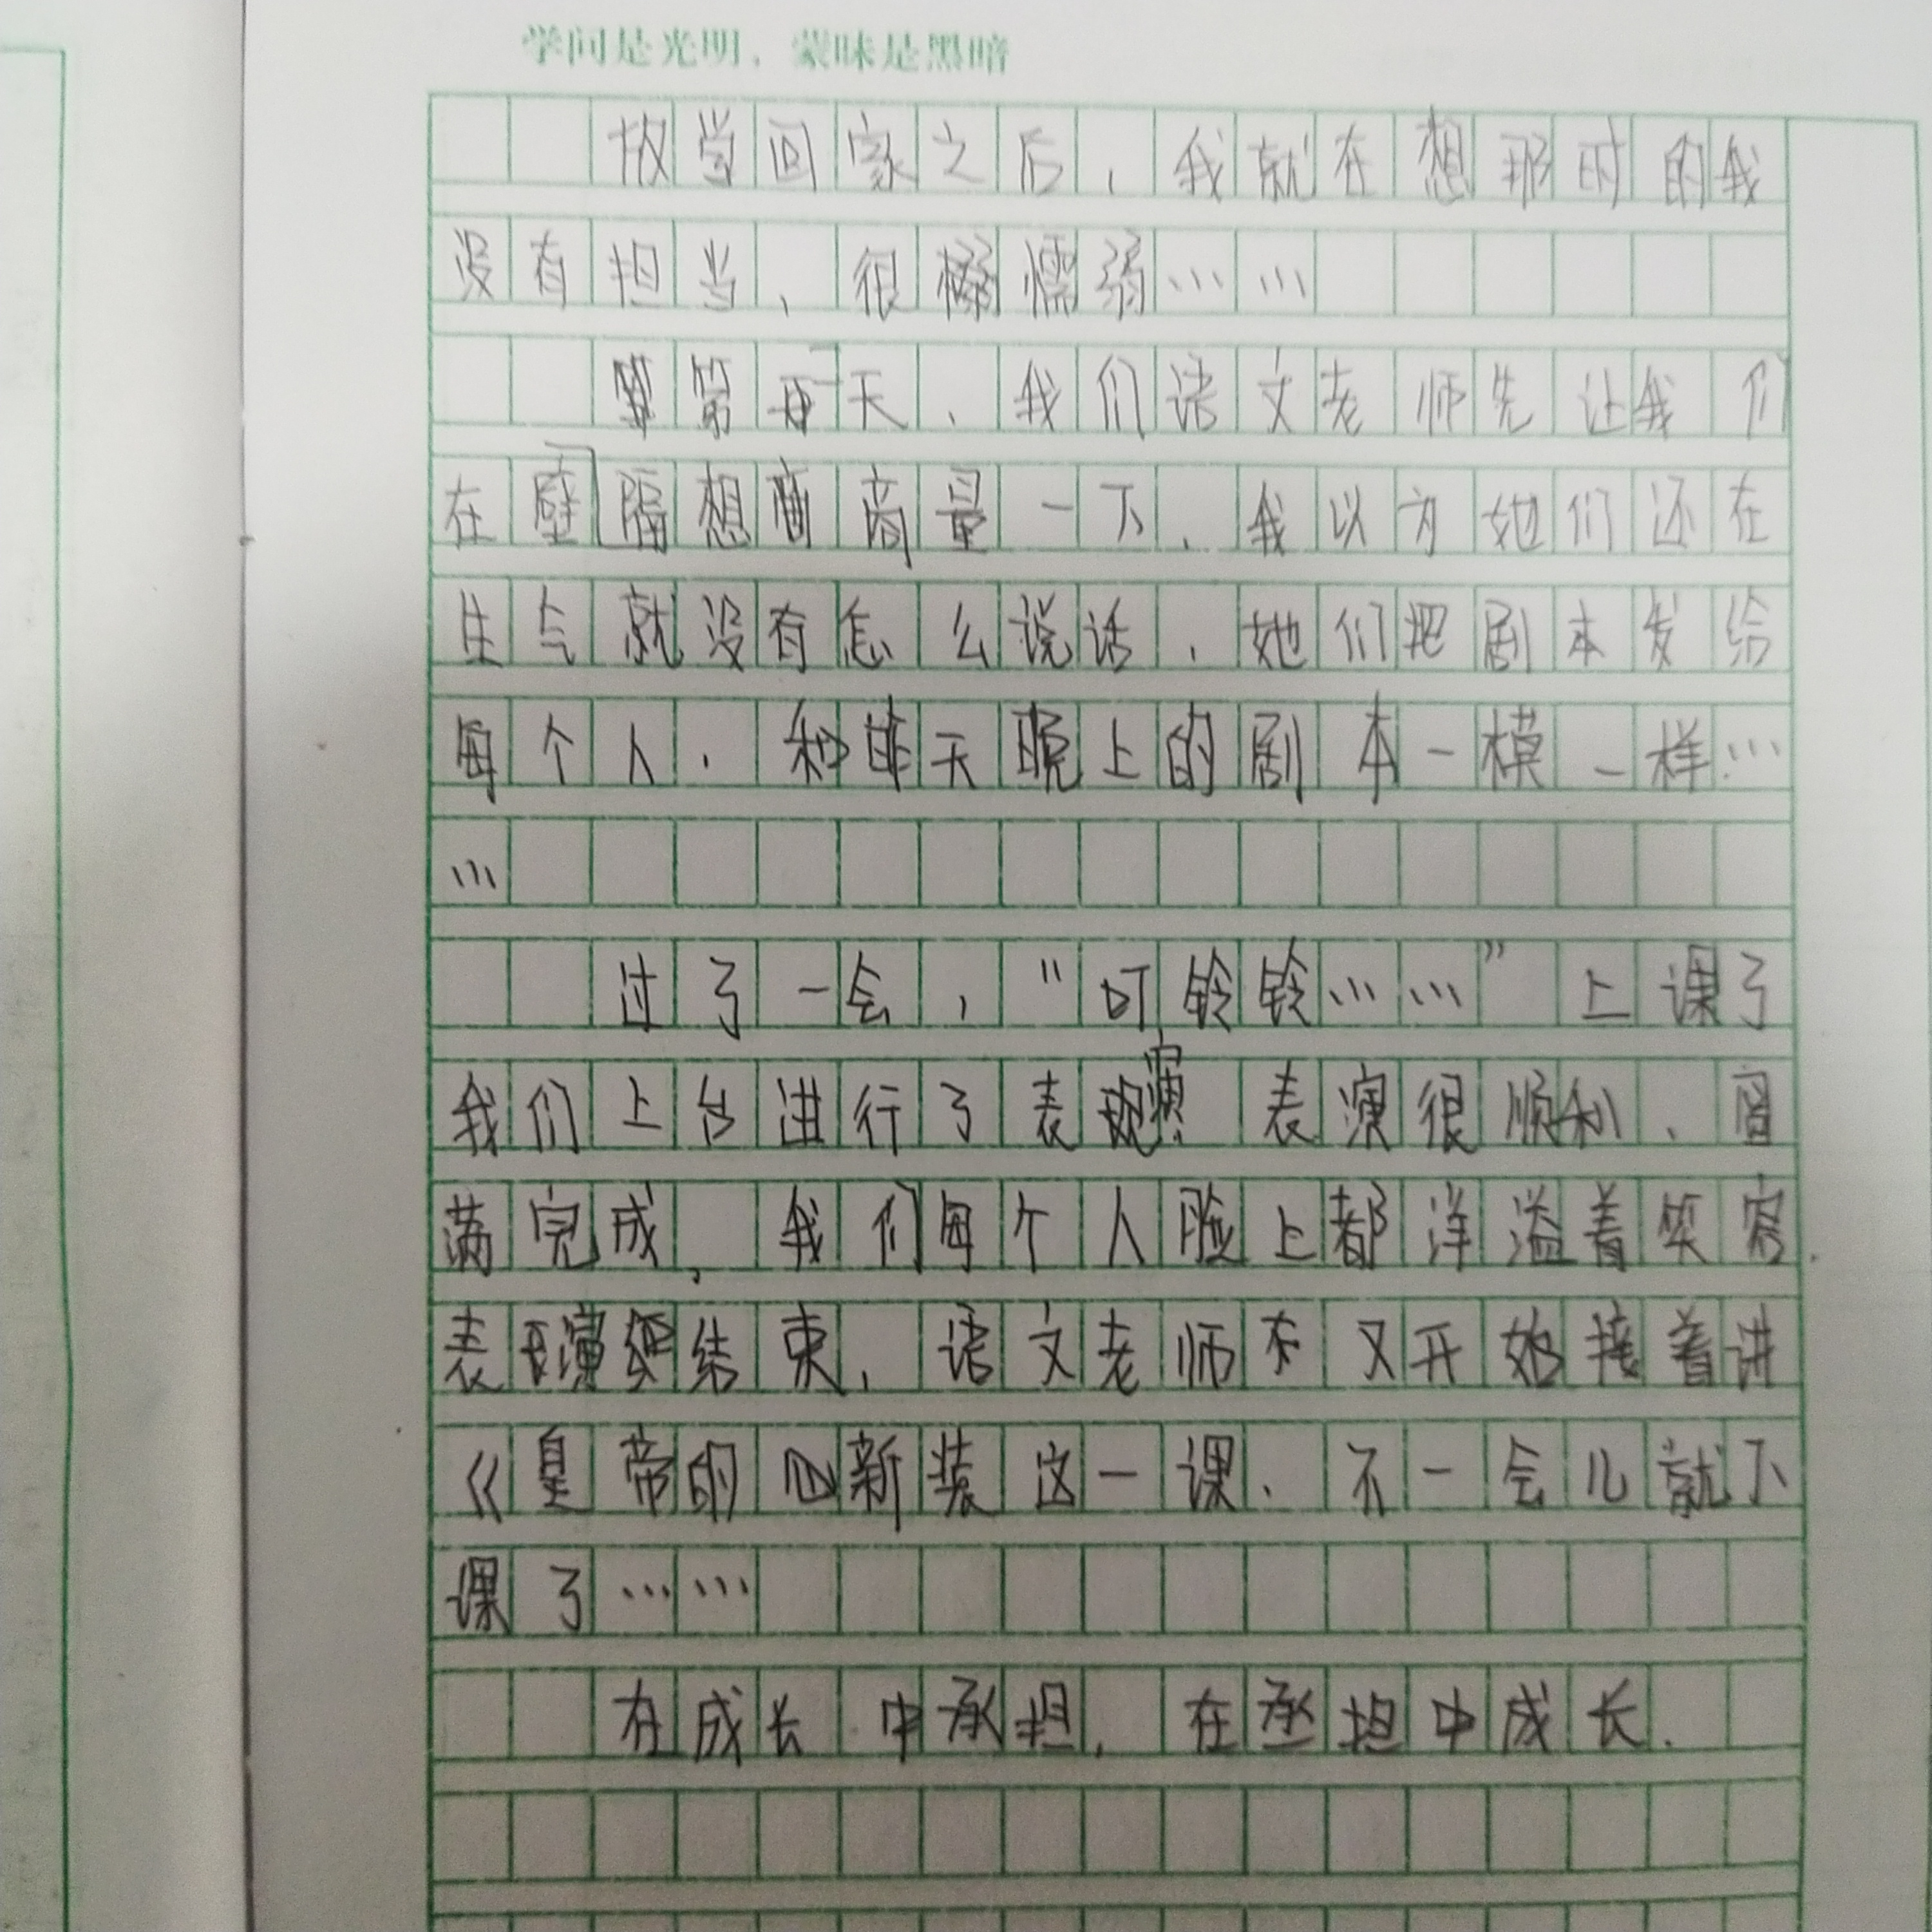 学问是光明，蒙昧是黑暗
放学回家之后，我就在想那时的我
没有担当，很懦弱……
第二天，我们语文老师先让我们
在隔壁想商量一下，我以为她们还在
生气就没有怎么说话，她们把剧本发给
每个人，和昨天晚上的剧本一模一样…
…
过了一会，“叮铃铃……”上课了
我们上台进行了表演，表演很顺利，圆
满完成，我们每个人脸上都洋溢着笑容，
表演结束，语文老师又开始接着讲
《皇帝的新装这一课，不一会儿就下
课了……
在成长中承担，在承担中成长。